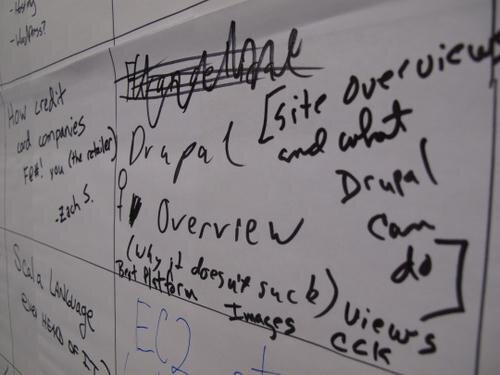 - Hosting
- WordPress?
How credit
card companies
F@#! you (the retailer)
- Zach S.
Drupal
Overview
(why it doesn't suck)
[site overviews
and what
Drupal
can
do]
Best Platform
Images
Views
CCK
Scala Language
ever heard of it
EC2